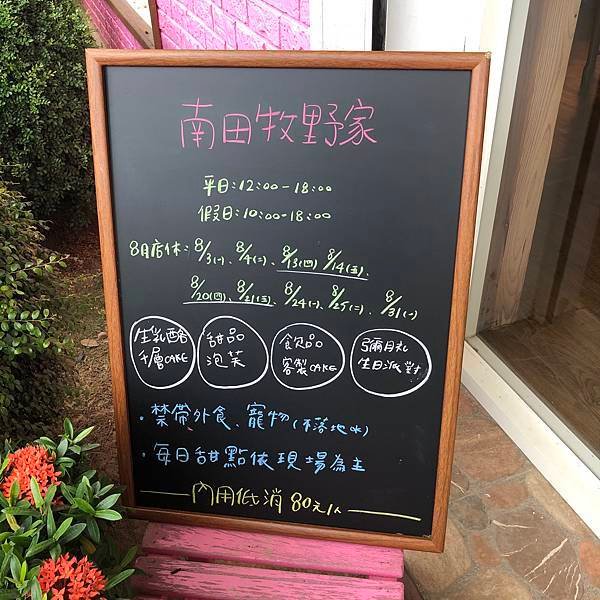 南田牧野家
平日:12:00-18:00
假日:10:00-18:00
8月店休:8/3(一)、8/4(二)、8/13(四)、8/14(五)、
8/20(四)、8/21(五)、8/24(一)、8/25(二)、8/31(一)
生乳酪
千層CAKE
甜品
泡芙
飲品
客製CAKE
彌月礼
生日派對
・禁帶外食、寵物(不落地ok)
・每日甜點依現場為主
內用低消80元/人